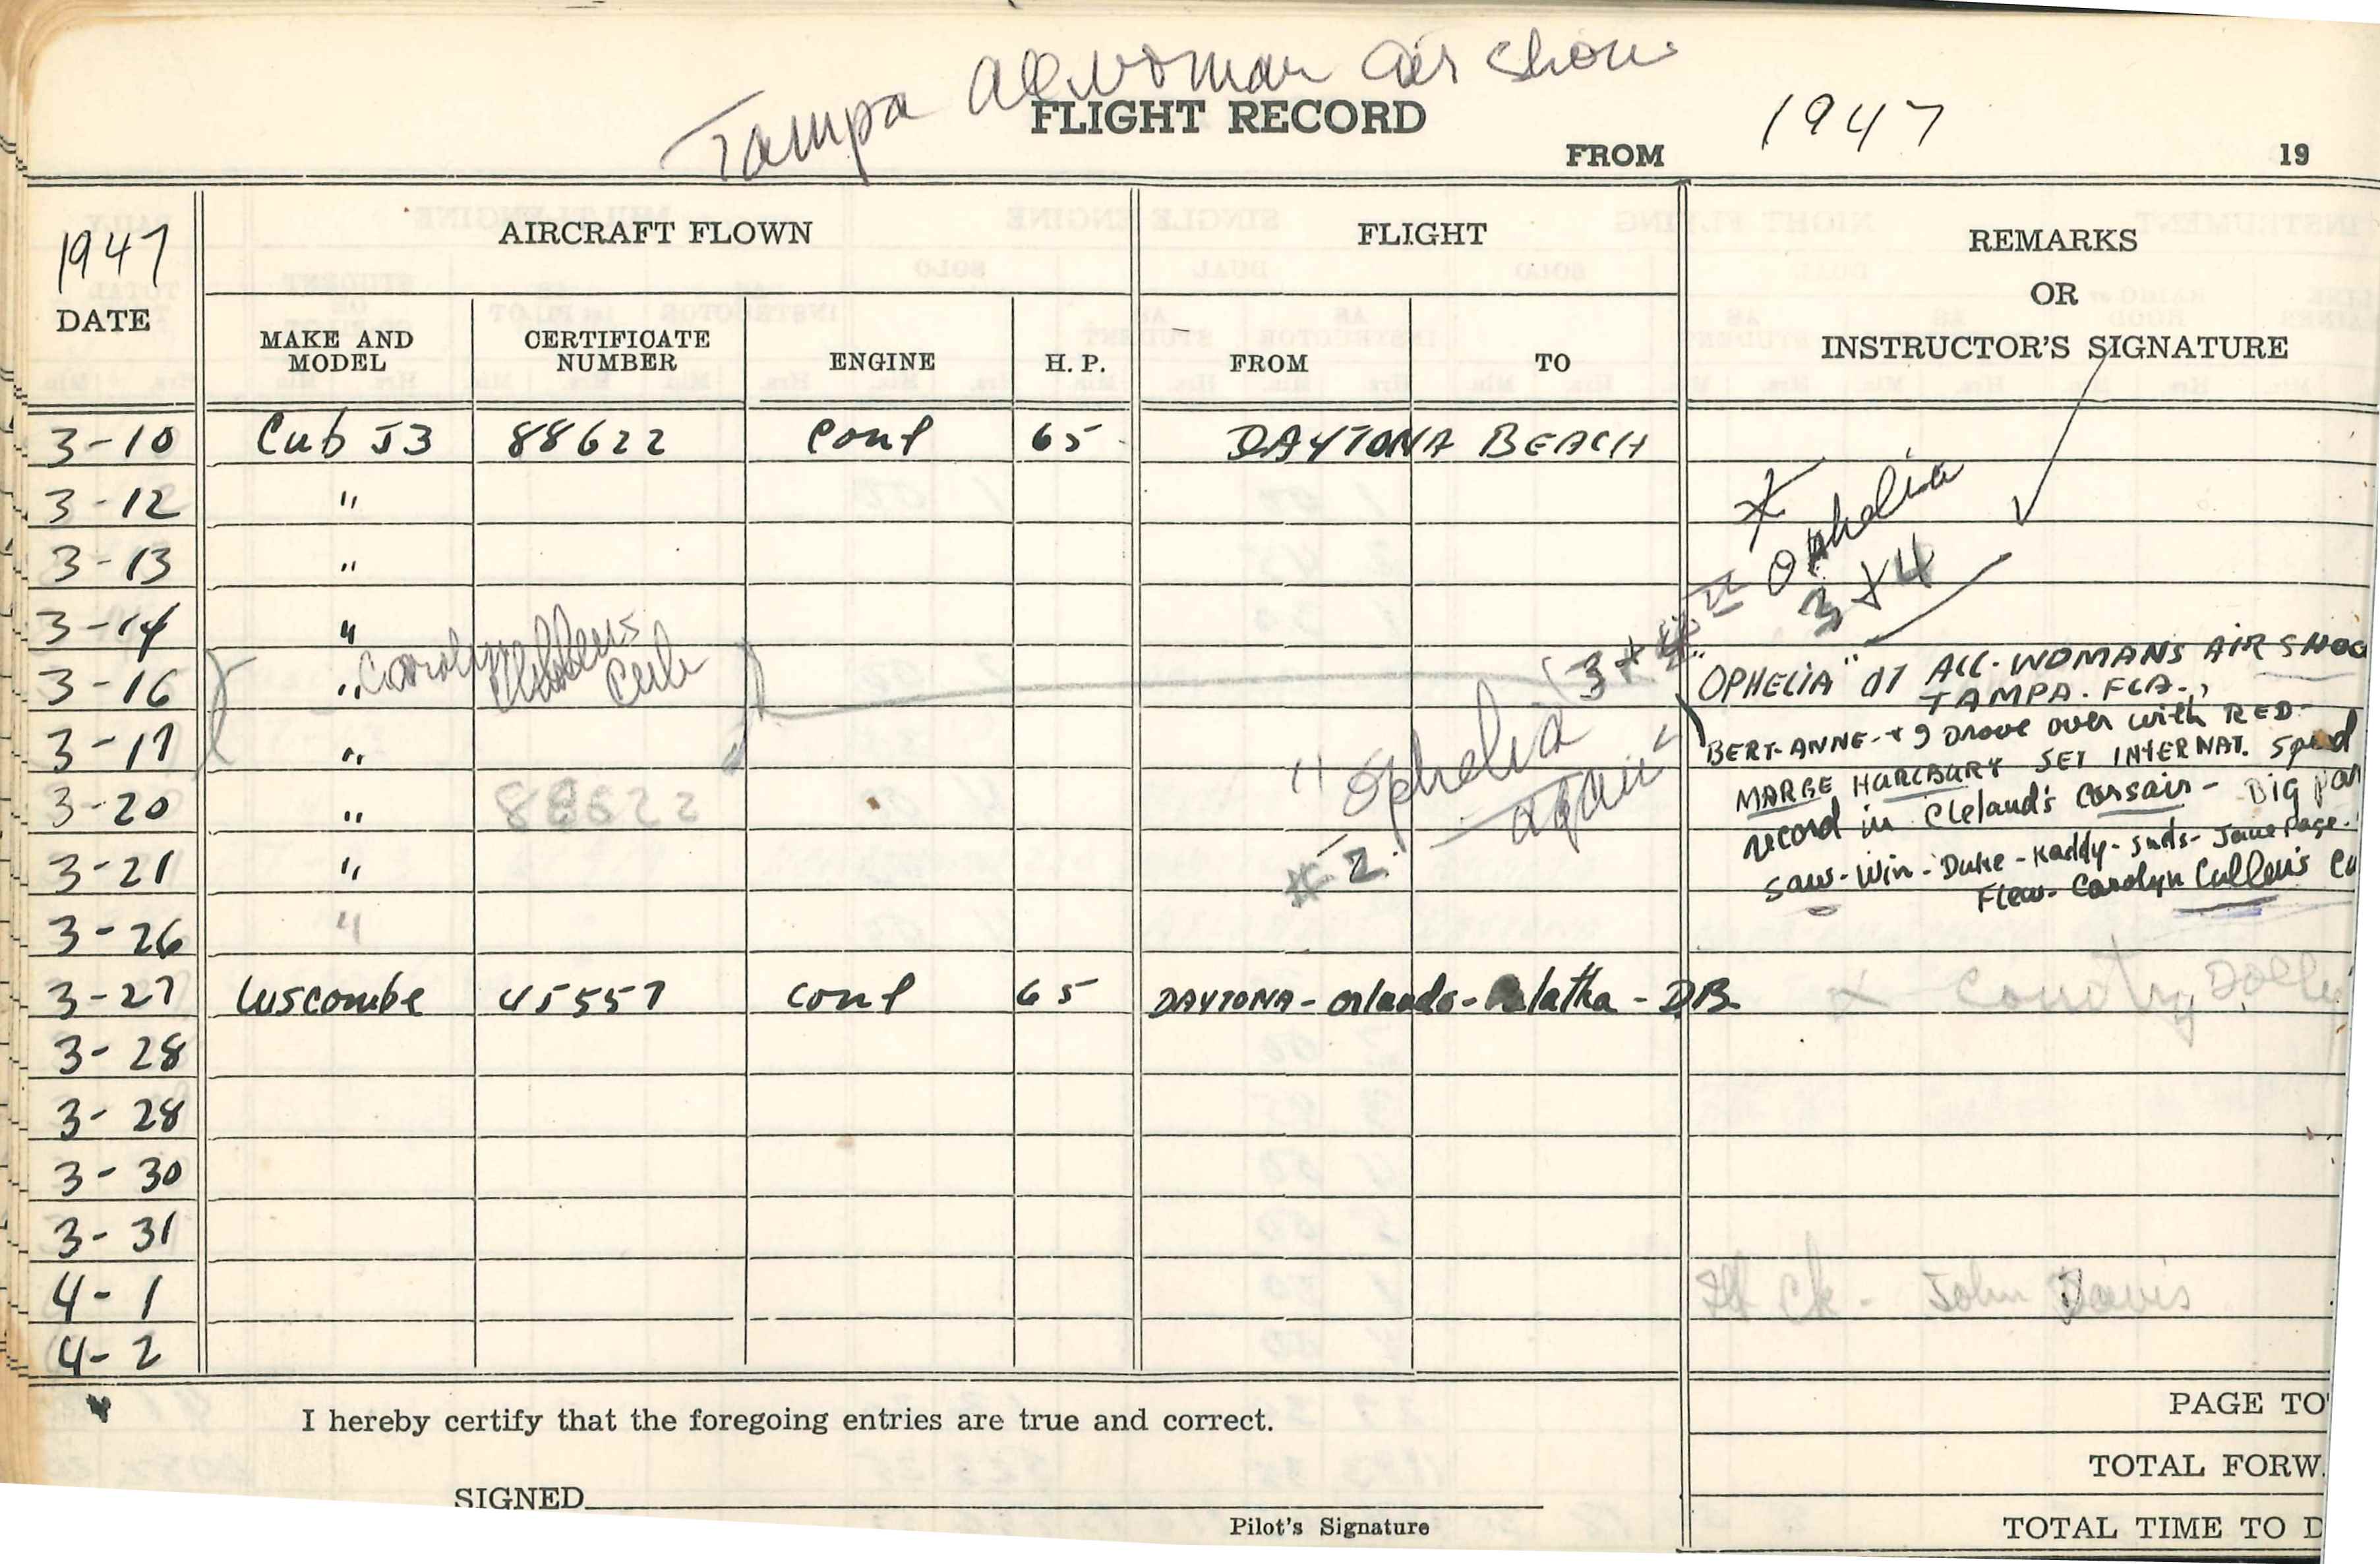 Tampa All Woman Air Show
FLIGHT RECORD
FROM 1947 19
1947
DATE
AIRCRAFT FLOWN
FLIGHT
REMARKS
OR
INSTRUCTOR'S SIGNATURE
MAKE AND
MODEL
CERTIFICATE
NUMBER
ENGINE
H. P.
FROM
TO
3-10 Cub J3 88622 Cont 65 DAYTONA BEACH
3-12 "
3-13 "
3-14 "
3-16 " Carolyn Cullens Cub
3-17 "
3-20 " 88622
3-21 "
3-26 "
3-27 Luscombe 45557 Cont 65 DAYTONA - Orlando - Palatka - D.B.
3-28
3-28
3-30
3-31
4-1
4-2
Ophelia
3+4
"Ophelia
again"
#2
"OPHELIA" at ALL-WOMANS AIR SHOW
TAMPA. FLA.,
BERT-ANNE-+ I drove over with RED-
MARGE HURLBURT SET INTERNAT. Speed
record in Cleland's Corsair - Big
saw-Win-Duke-Kaddy-suds-Jane Page.
Flew- Carolyn Cullen's Cu
x Country Dolly
Flt Ck - John Davis
I hereby certify that the foregoing entries are true and correct.
SIGNED
Pilot's Signature
PAGE TO
TOTAL FORW
TOTAL TIME TO D